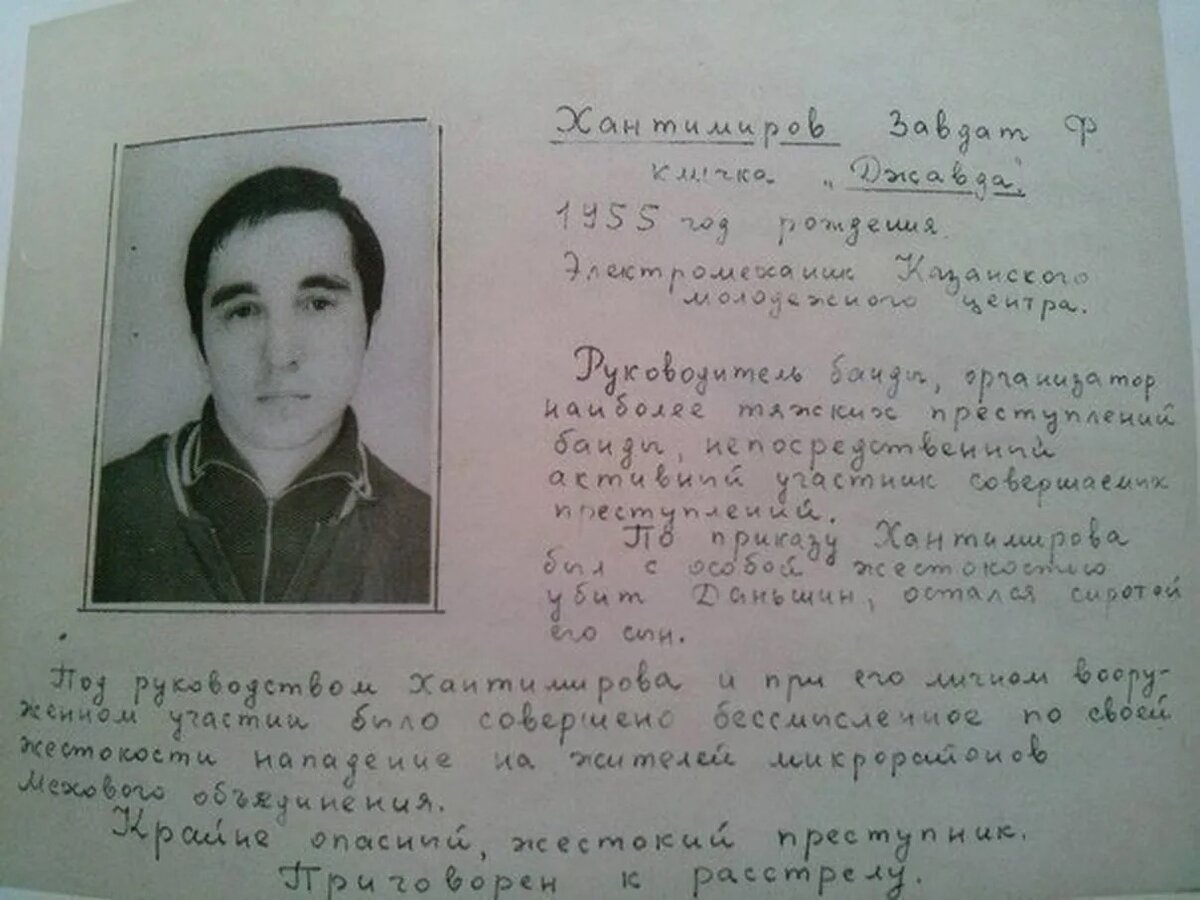 Хантимиров Завдат Ф
кличка „Джавда".
1955 год рождения.
Электромеханик Казанского
молодежного центра.
Руководитель банды, организатор
наиболее тяжских преступлений
банды, непосредственный
активный участник совершаемых
преступлений.
По приказу Хантимирова
был с особой жестокостью
убит Даньшин, остался сиротой
его сын.
Под руководством Хантимирова и при его личном воору-
женном участии было совершено бессмысленное по своей
жестокости нападение на жителей микрорайонов
Мехового объединения.
Крайне опасный, жестокий преступник.
Приговорен к расстрелу.